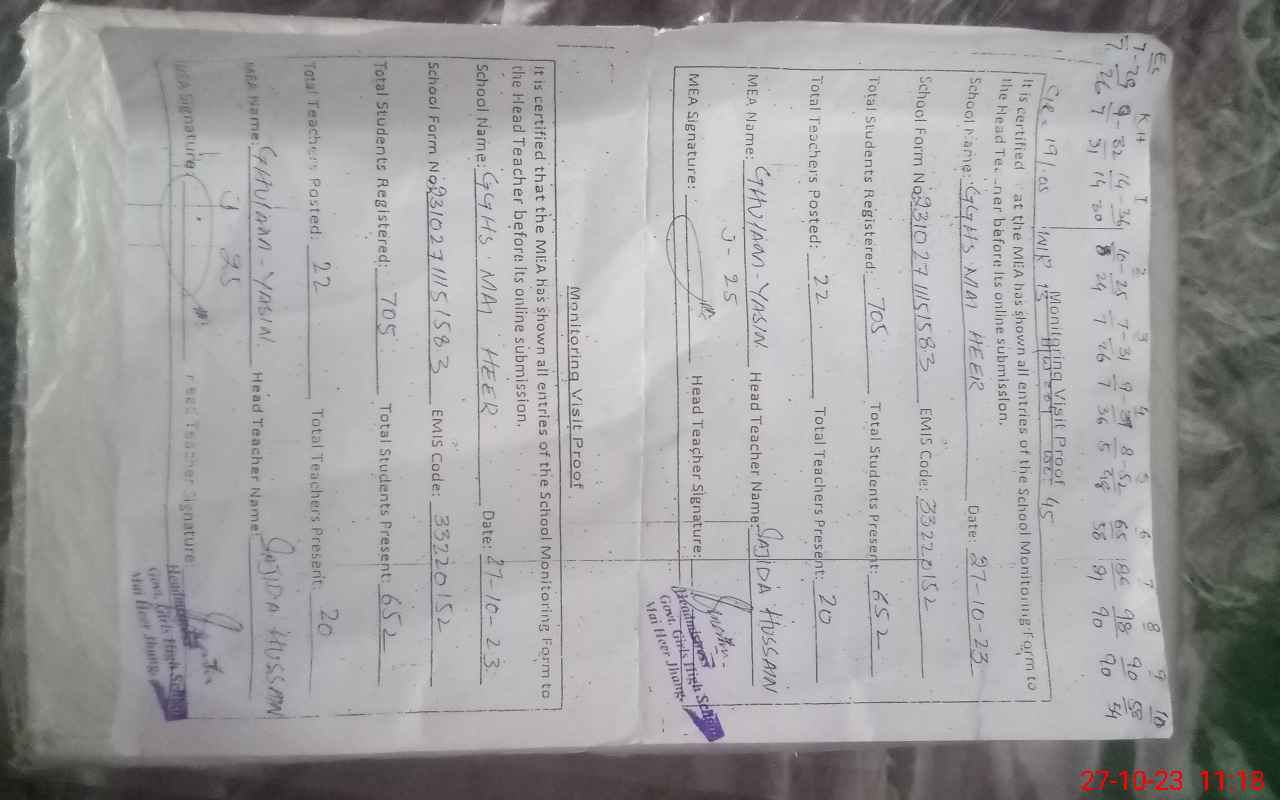 Es KH T 2 3 4 5 6 7 8 9 10
9-32 14-36 10-25 7-31 8-52 65 86 98 90 58
26 7 31 14 20 8 24 7 26 7 36 5 48 58 81 90 90 54
45
Monitoring Visit Proof
It is certified at the MEA has shown all entries of the School Monitoring Form to
the Head Te ner before its online submission.
School Name: GGHS MAI HEER Date: 27-10-23
School Form No: 231027111151583 EMIS Code: 33220152
Total Students Registered: 705 Total Students Present: 652
Total Teachers Posted: 22 Total Teachers Present: 20
MEA Name: GHULAM-YASIN Head Teacher Name: SAJIDA HUSSAIN
J-25
MEA Signature: Head Teacher Signature:
Headmistress
Govt. Girls High School
Mai Heer Jhang
Monitoring Visit Proof
It is certified that the MEA has shown all entries of the School Monitoring Form to
the Head Teacher before its online submission.
School Name: GGHS. MAI HEER Date: 27-10-23
School Form No: 231027111151583 EMIS Code: 33220152
Total Students Registered: 705 Total Students Present: 652
Total Teachers Posted: 22 Total Teachers Present: 20
MEA Name: GHULAM-YASIN Head Teacher Name: SAJIDA HUSSAIN
J 25
MEA Signature Head Teacher Signature:
Headmistress
Govt. Girls High School
Mai Heer Jhang
27-10-23 11:18